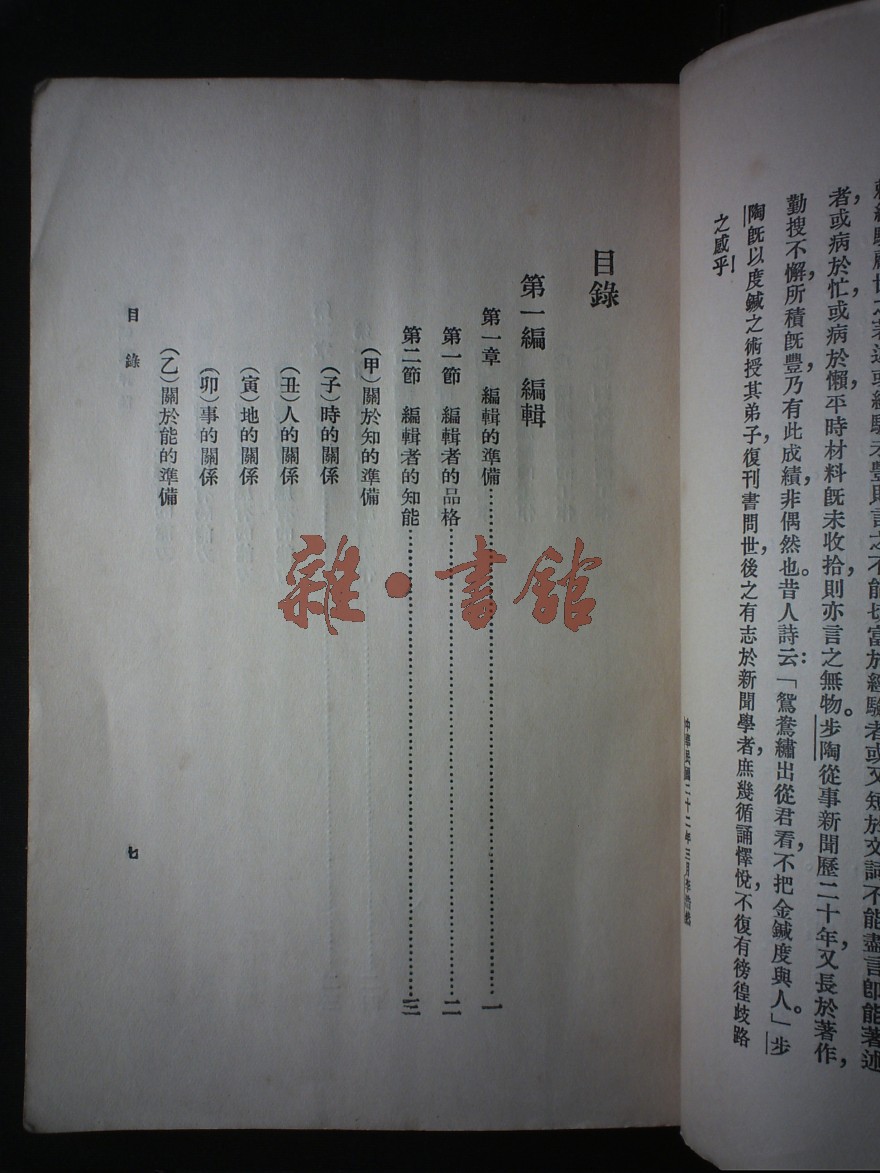 者，或病於忙，或病於懶，平時材料既未收拾，則亦言之無物。步陶從事新聞歷二十年，又長於著作，
勤搜不懈，所積既豐，乃有此成績，非偶然也。昔人詩云：「鴛鴦繡出從君看，不把金鍼度與人。」步
陶既以度鍼之術授其弟子，復刊書問世，後之有志於新聞學者，庶幾循誦懌悅，不復有徬徨歧路
之感乎！
中華民國二十二年三月
目錄
第一編 編輯
第一章 編輯的準備……一
第一節 編輯者的品格……二
第二節 編輯者的知能……三
（甲）關於知的準備
（子）時的關係
（丑）人的關係
（寅）地的關係
（卯）事的關係
（乙）關於能的準備
目錄
七
雜·書館